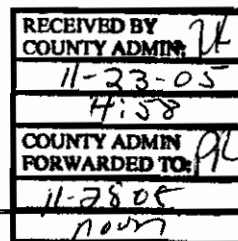 RECEIVED BY
COUNTY ADMIN:
11-23-05
4:58
COUNTY ADMIN
FORWARDED TO:
11-28 05
noon